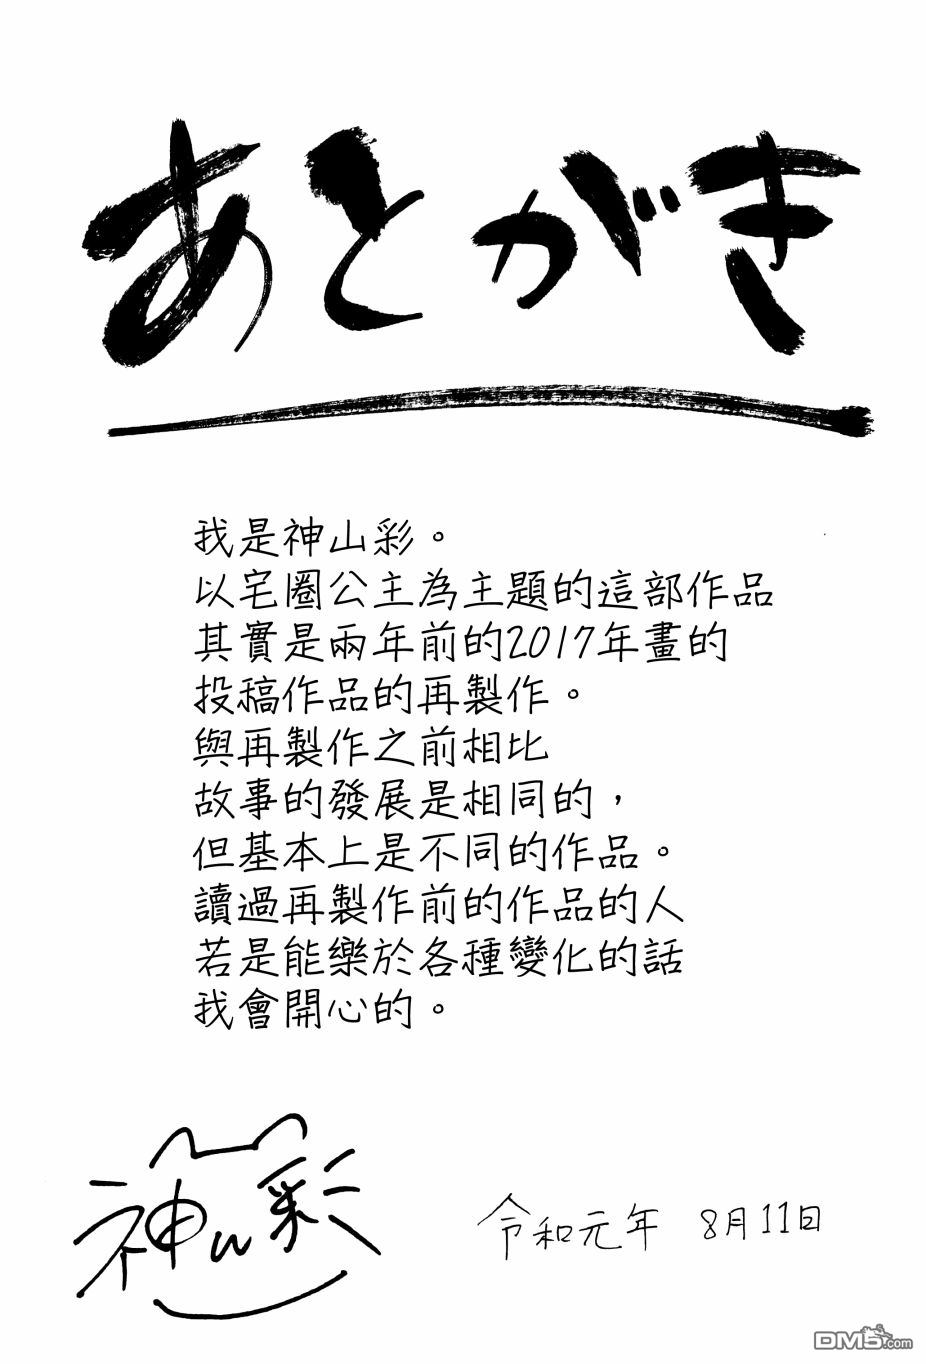 あとがき
我是神山彩。
以宅圈公主為主題的這部作品
其實是兩年前的2017年畫的
投稿作品的再製作。
與再製作之前相比
故事的發展是相同的，
但基本上是不同的作品。
讀過再製作前的作品的人
若是能樂於各種變化的話
我會開心的。
神山彩
令和元年 8月11日
DM5.com